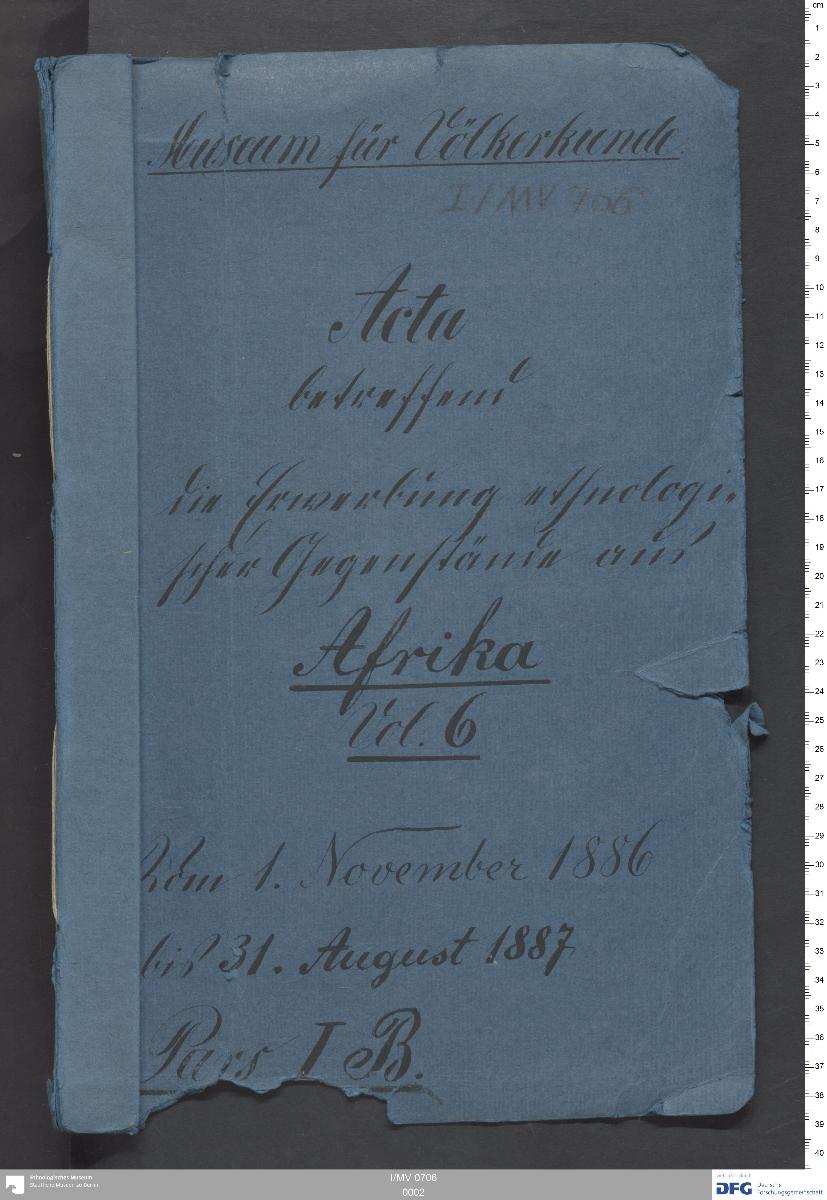 Museum für Völkerkunde.
I/MV 706
Acta
betreffend
die Erwerbung ethnologi-
scher Gegenstände aus
Afrika
Vol. 6
Vom 1. November 1886
bis 31. August 1887
Pars I B.
cm
1
2
3
4
5
6
7
8
9
10
11
12
13
14
15
16
17
18
19
20
21
22
23
24
25
26
27
28
29
30
31
32
33
34
35
36
37
38
39
40
Ethnologisches Museum
Staatliche Museen zu Berlin
I/MV 0706
0002
DFG Deutsche
Forschungsgemeinschaft